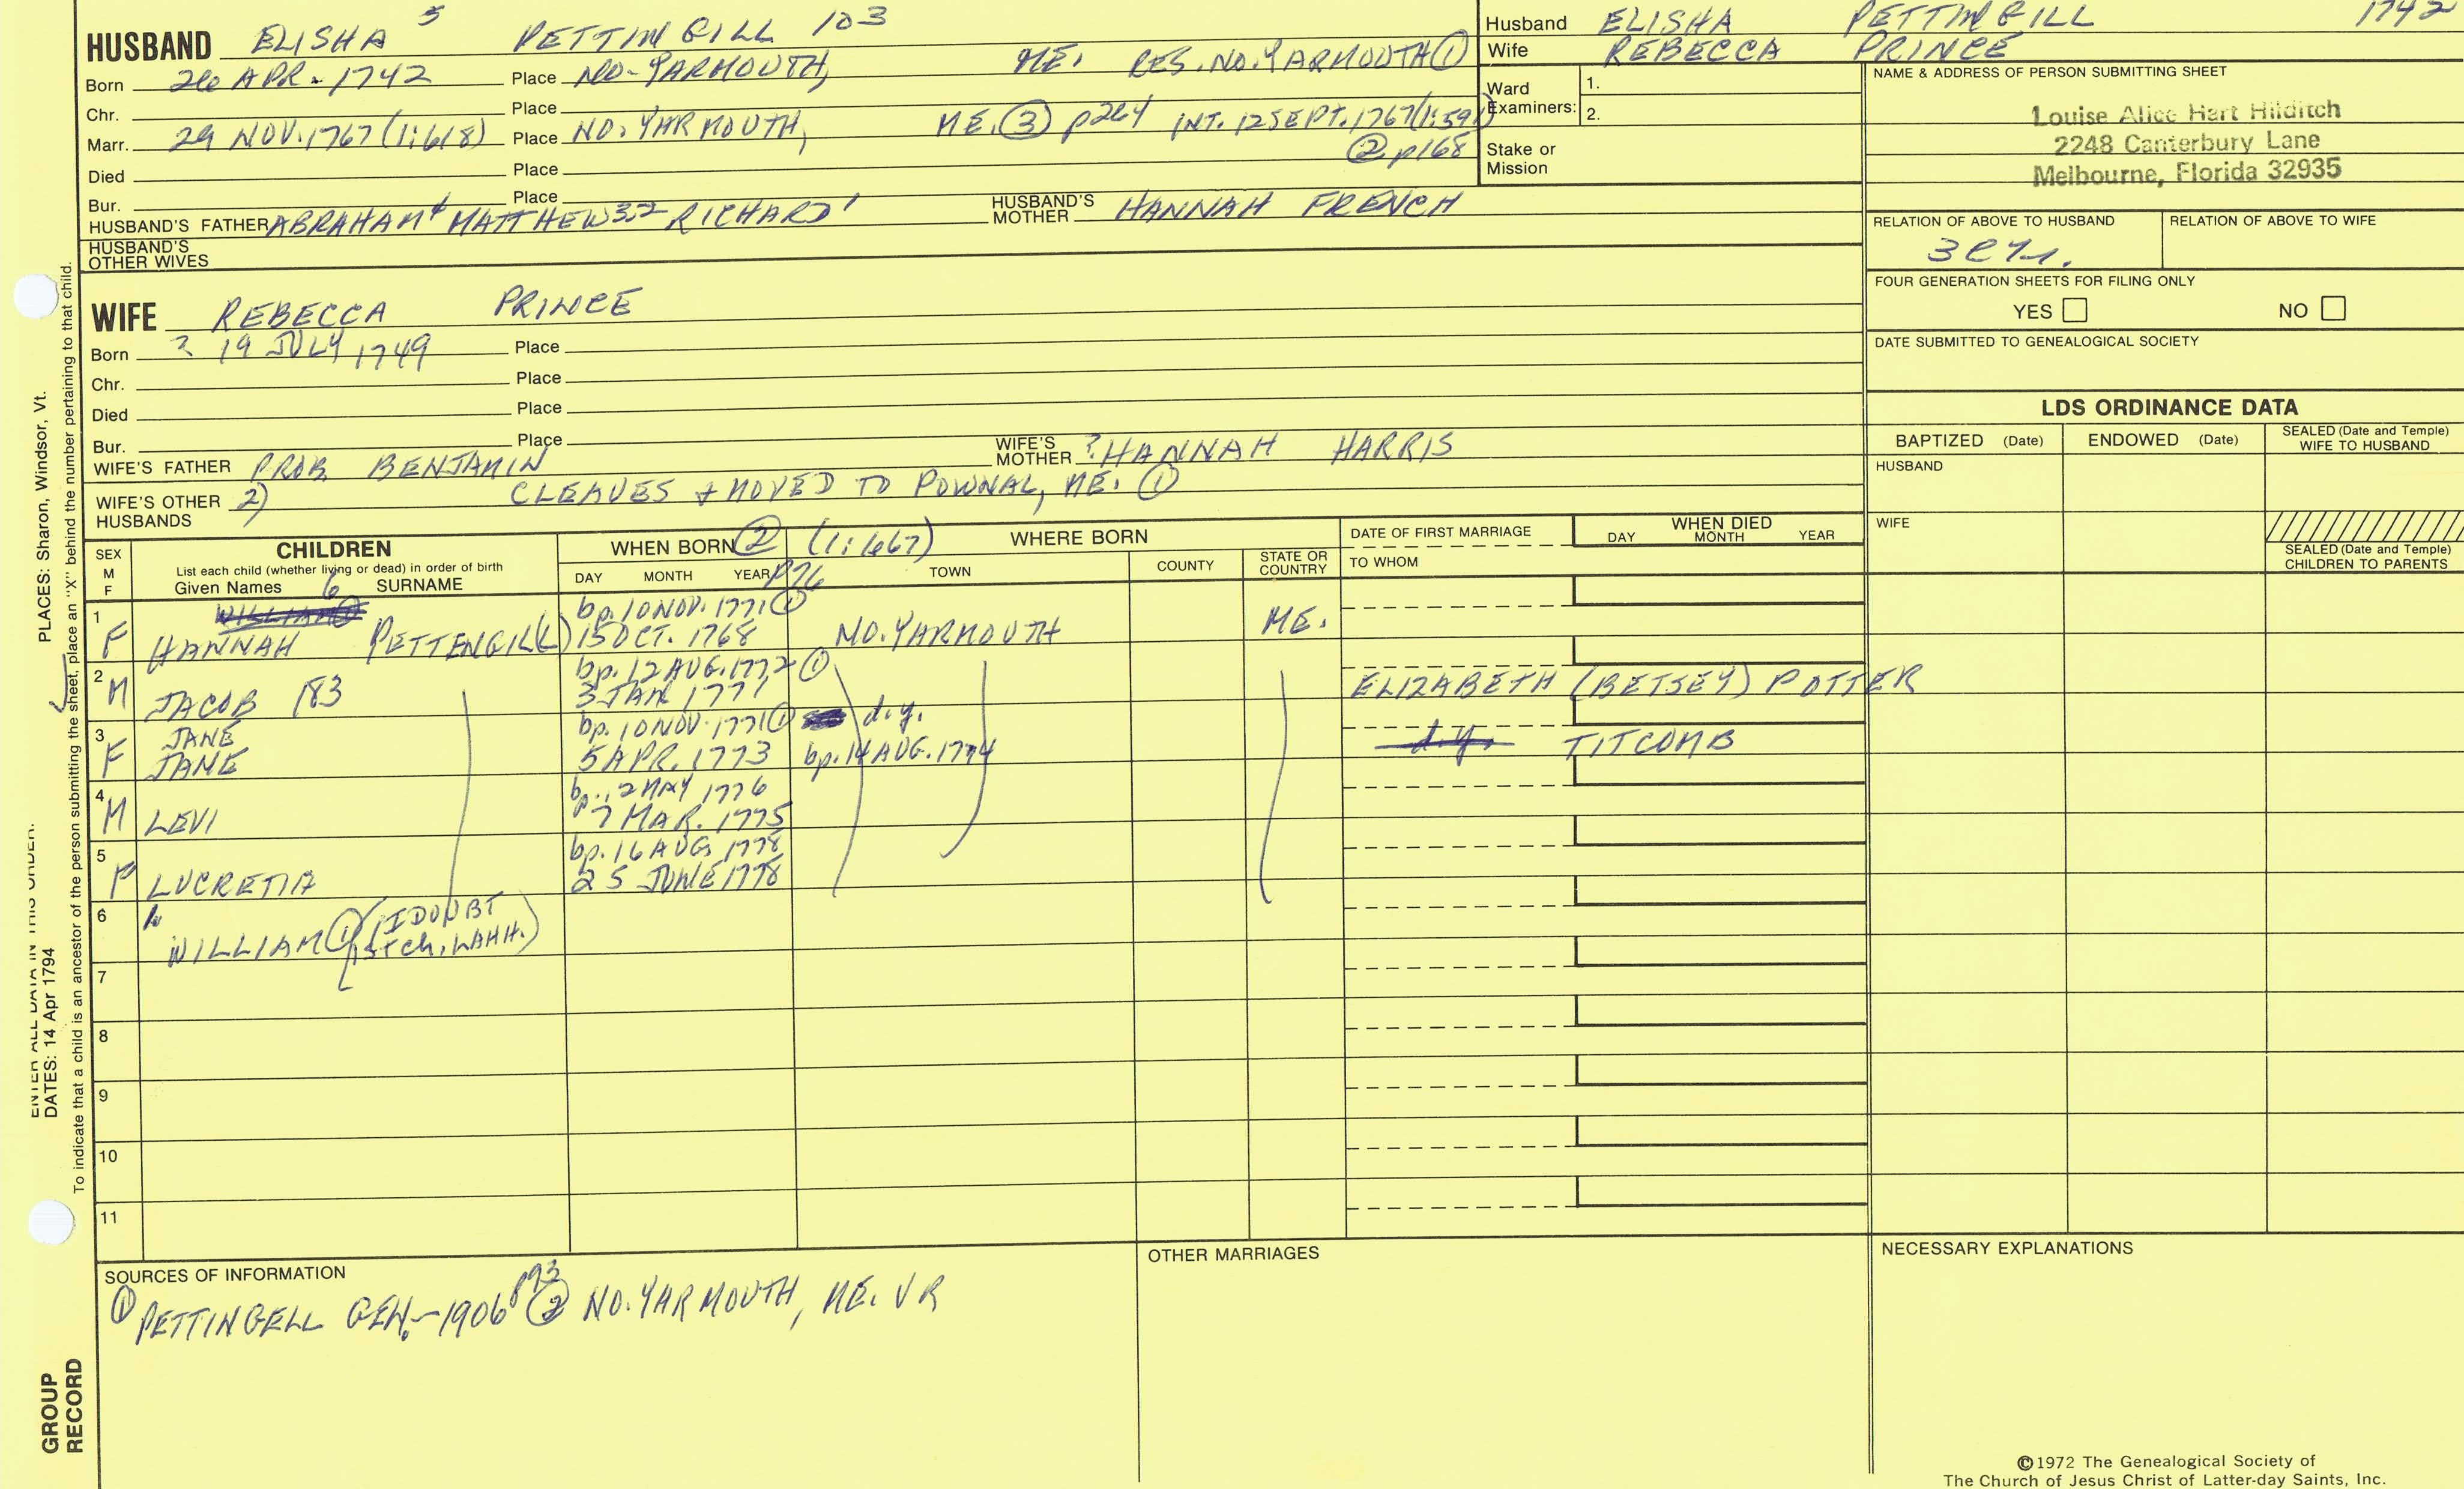 HUSBAND ELISHA 5 PETTINGILL 103
Born 26 APR. 1742 Place NO. YARMOUTH, ME. RES. NO. YARMOUTH ①
Chr. Place
Marr. 29 NOV. 1767 (1:618) Place NO. YARMOUTH, ME. ③ p264 INT. 12 SEPT. 1767 (1:591)
② p168
Died Place
Bur. Place
HUSBAND'S FATHER ABRAHAM 4 MATTHEW 3 2 RICHARD 1 HUSBAND'S MOTHER HANNAH FRENCH
HUSBAND'S
OTHER WIVES
Husband ELISHA PETTINGILL 1742
Wife REBECCA PRINCE
Ward
Examiners: 1.
2.
Stake or
Mission
NAME & ADDRESS OF PERSON SUBMITTING SHEET
Louise Alice Hart Hilditch
2248 Canterbury Lane
Melbourne, Florida 32935
RELATION OF ABOVE TO HUSBAND RELATION OF ABOVE TO WIFE
FOUR GENERATION SHEETS FOR FILING ONLY
YES NO
DATE SUBMITTED TO GENEALOGICAL SOCIETY
WIFE REBECCA PRINCE
Born ? 19 JULY 1749 Place
Chr. Place
Died Place
Bur. Place
WIFE'S FATHER PROB. BENJAMIN WIFE'S MOTHER ? HANNAH HARRIS
WIFE'S OTHER
HUSBANDS 2) CLEAVES & MOVED TO POWNAL, ME. ①
LDS ORDINANCE DATA
BAPTIZED (Date) ENDOWED (Date) SEALED (Date and Temple)
WIFE TO HUSBAND
HUSBAND
WIFE
SEALED (Date and Temple)
CHILDREN TO PARENTS
SEX
M
F
CHILDREN
List each child (whether living or dead) in order of birth
Given Names 6 SURNAME
WHEN BORN ② (1:667)
DAY MONTH YEAR p76
WHERE BORN
TOWN COUNTY STATE OR
COUNTRY
DATE OF FIRST MARRIAGE
TO WHOM
WHEN DIED
DAY MONTH YEAR
1 WILLIAM ① bp. 10 NOV. 1771 ①
F HANNAH PETTENGIL(L) 15 OCT. 1768 NO. YARMOUTH ME.
2 bp. 12 AUG. 1772 ①
M JACOB 183 3 JAN 1771 ELIZABETH (BETSEY) POTTER
3 JANE bp. 10 NOV. 1771 ① d.y.
F JANE 5 APR. 1773 bp. 14 AUG. 1774 d.y. TITCOMB
4 bp. 12 MAY 1776
M LEVI 7 MAR. 1775
5 bp. 16 AUG 1778
F LUCRETIA 25 JUNE 1778
6 WILLIAM ① (I DOUBT
1st ch, LAHH.)
7
8
9
10
11
SOURCES OF INFORMATION
① PETTINGELL GEN.-1906 p93 ② NO. YARMOUTH, ME. VR
OTHER MARRIAGES
NECESSARY EXPLANATIONS
©1972 The Genealogical Society of
The Church of Jesus Christ of Latter-day Saints, Inc.
PLACES: Sharon, Windsor, Vt.
ENTER ALL DATA IN THIS ORDER:
DATES: 14 Apr 1794
To indicate that a child is an ancestor of the person submitting the sheet, place an "X" behind the number pertaining to that child.
GROUP
RECORD